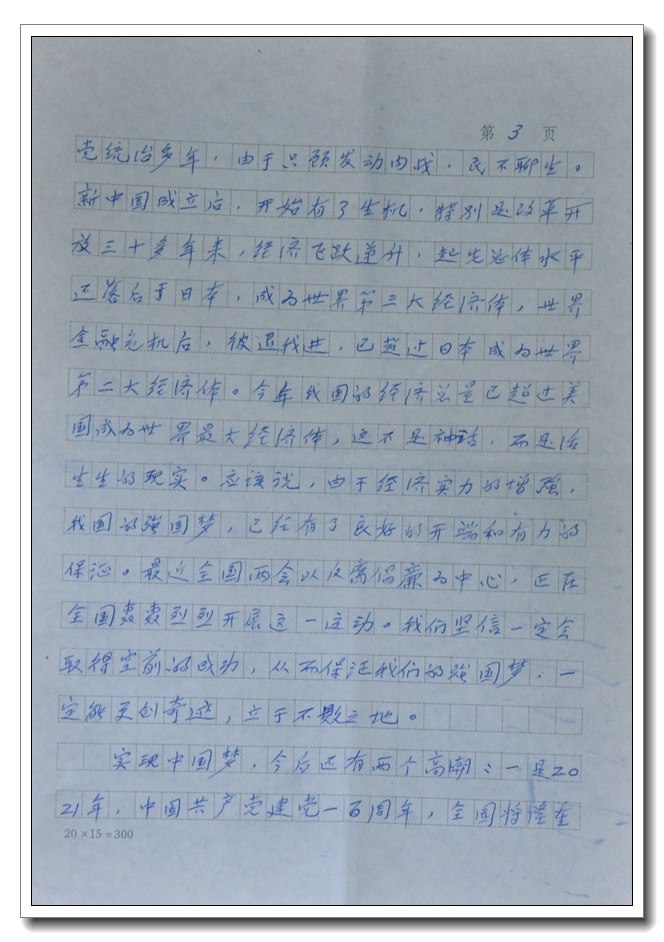 第 3 页
党统治多年，由于只顾发动内战，民不聊生。
新中国成立后，开始有了生机，特别是改革开
放三十多年来，经济飞跃递升，起先总体水平
还落后于日本，成为世界第三大经济体，世界
金融危机后，彼退我进，已超过日本成为世界
第二大经济体。今年我国的经济总量已超过美
国成为世界最大经济体，这不是神话，而是活
生生的现实。应该说，由于经济实力的增强，
我国的强国梦，已经有了良好的开端和有力的
保证。最近全国两会以反腐倡廉为中心，正在
全国轰轰烈烈开展这一运动。我们坚信一定会
取得空前的成功，从而保证我们的强国梦，一
定能更创奇迹，立于不败之地。
实现中国梦，今后还有两个高潮：一是20
21年，中国共产党建党一百周年，全国将隆重
20×15=300